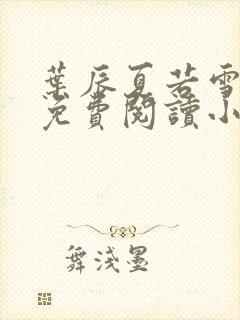 葉辰夏若雪
免費閱讀小
舞淺墨